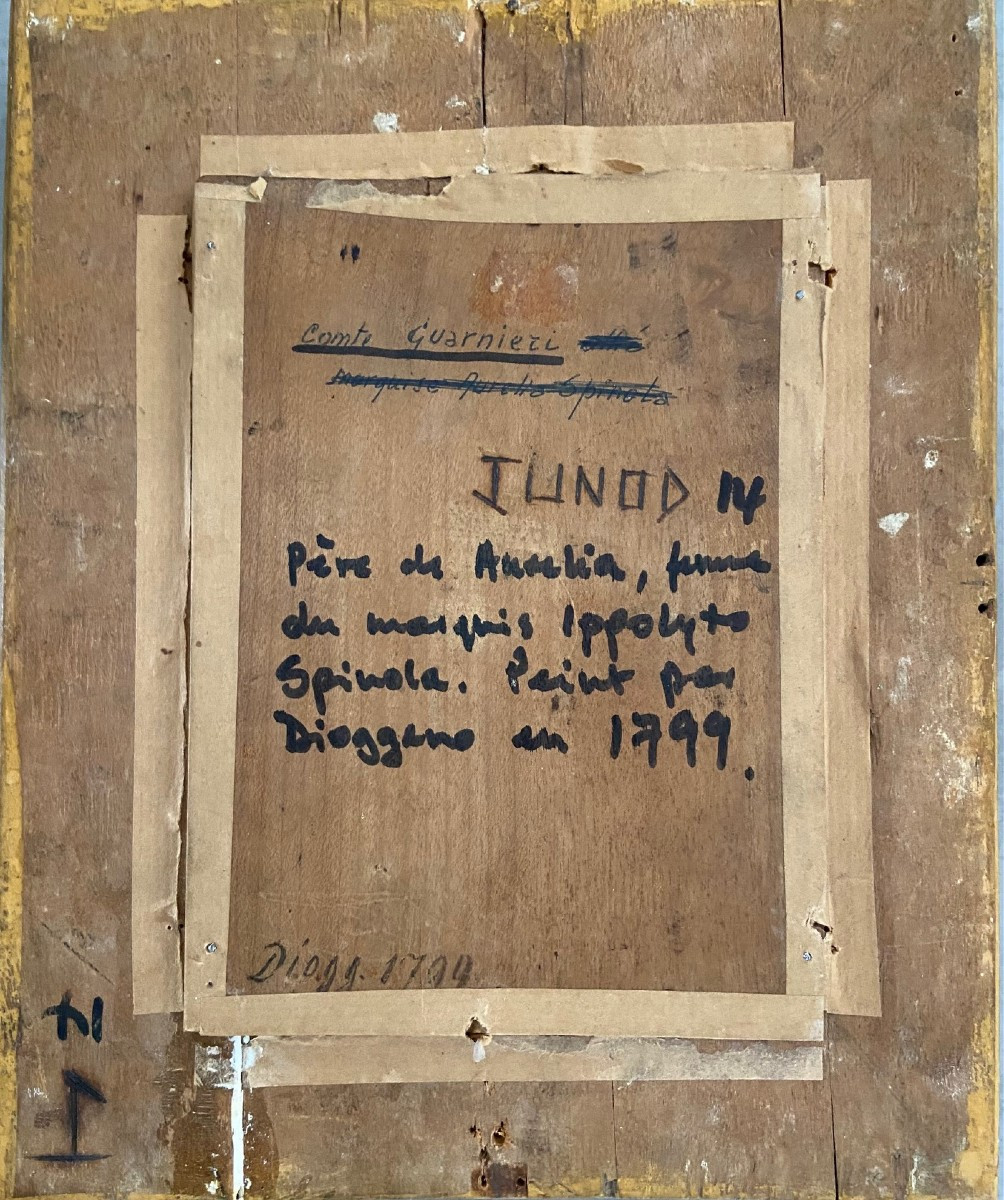 "
Comte Guarnieri
marquise Aurelia Spinola
JUNOD 14
Père de Aurelia, femme
du marquis Ippolyto
Spinola. Peint par
Dioggeno en 1799.
Diogg. 1799
14
1